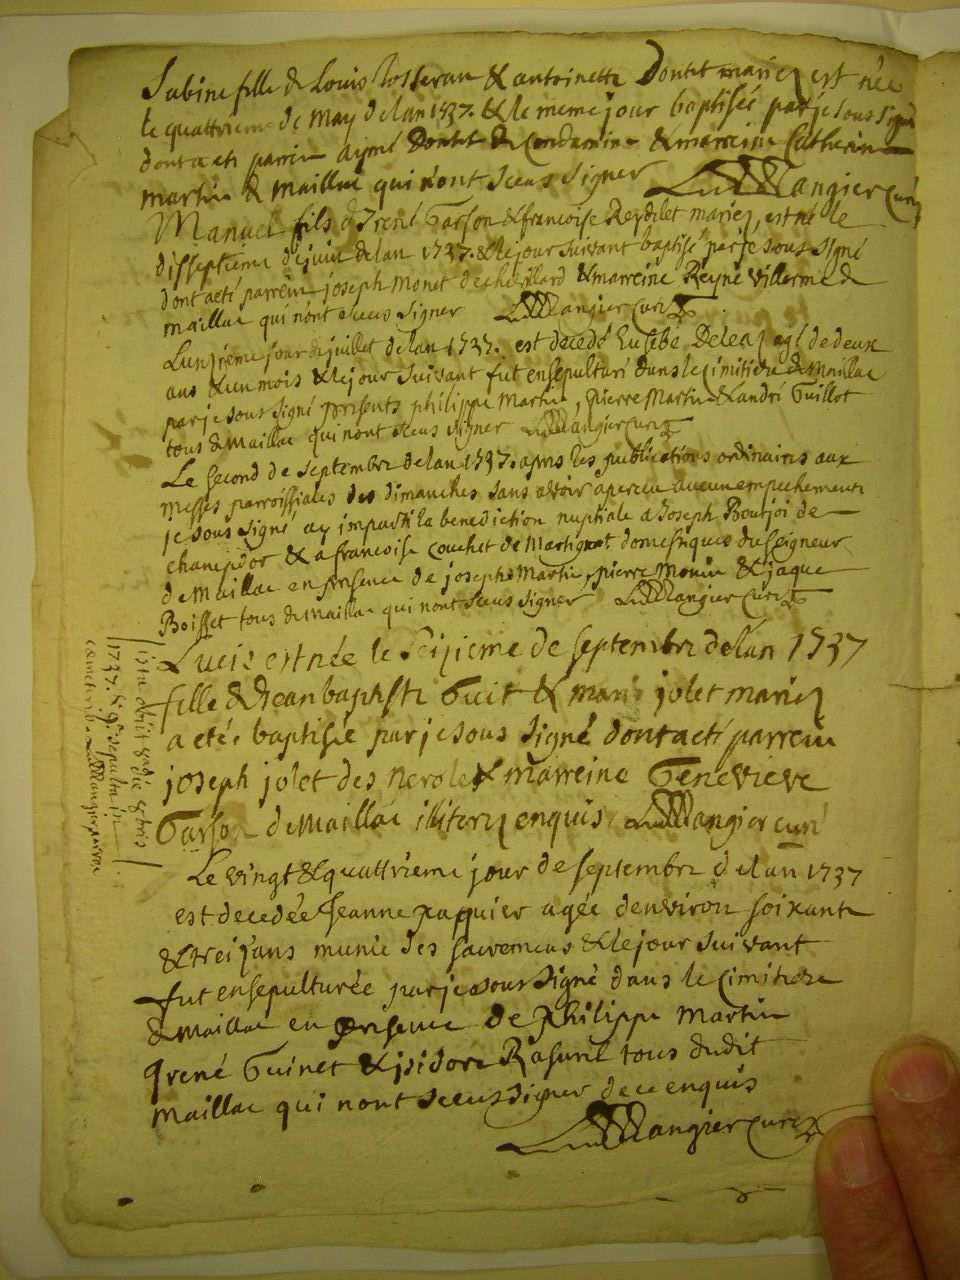 Sabine fille de Louis Josseran & antoinette Dontet mariez est née
le quattrieme de May de lan 1737. & le meme jour baptisée par je sous signé
dont a eté parrin aymé Dontet de Condamine & marreine Catherine
martin de maillac qui nont sceus signer Mangier curé
Manuel fils d'Irené Garson & francoise Reydelet mariez, est né le
disseptieme de juin de lan 1737. & le jour suivant baptisé par je sous signé
dont a eté parrein joseph Monet d'echevillard & marreine Reyne Villerme de
maillac qui nont sceus signer Mangier curé
L'unzieme jour de juillet de lan 1737. est decedé Eusebe Deleaz agé de deux
ans & un mois & le jour suivant fut ensepulturé dans le cimitiere de Maillac
par je sous signé presents philippe Martin, Pierre Martin & andré Guillot
tous de maillac qui nont sceus signer Mangier curé
Le second de septembre de lan 1737. apres les publications ordinaires aux
messes parroissiales des dimanches sans avoir aperceu aucun empechement
je sous signé ay imparti la benediction nuptiale a Joseph Bourjoi de
champdor & a francoise couchet de Martignat domestiques du seigneur
de Maillac en presence de joseph Martin, pierre Monin & jaque
Boisset tous de maillac qui nont sceus signer Mangier curé
Lucie est née le seizieme de septembre de lan 1737
fille de Jean baptiste Guit & marie jolet mariez
a eté baptisée par je sous signé dont a eté parrein
joseph jolet des nerole & marreine Genevieve
Garson de Maillac illiterez enquis Mangier curé
ista obiit die octobris
1737. & sepulta in
cœmeterio Mangier
Le vingt & quattrieme jour de septembre de lan 1737
est decedée Jeanne paquier agée denviron soixante
& treizans munie des sacremens & le jour suivant
fut ensepulturée par je sous signé dans le cimitiere
de maillac en presence de Philippe Martin
Irené Guinet & isidore Rasurel tous dudit
Maillac qui nont sceus signer de ce enquis
Mangier curé